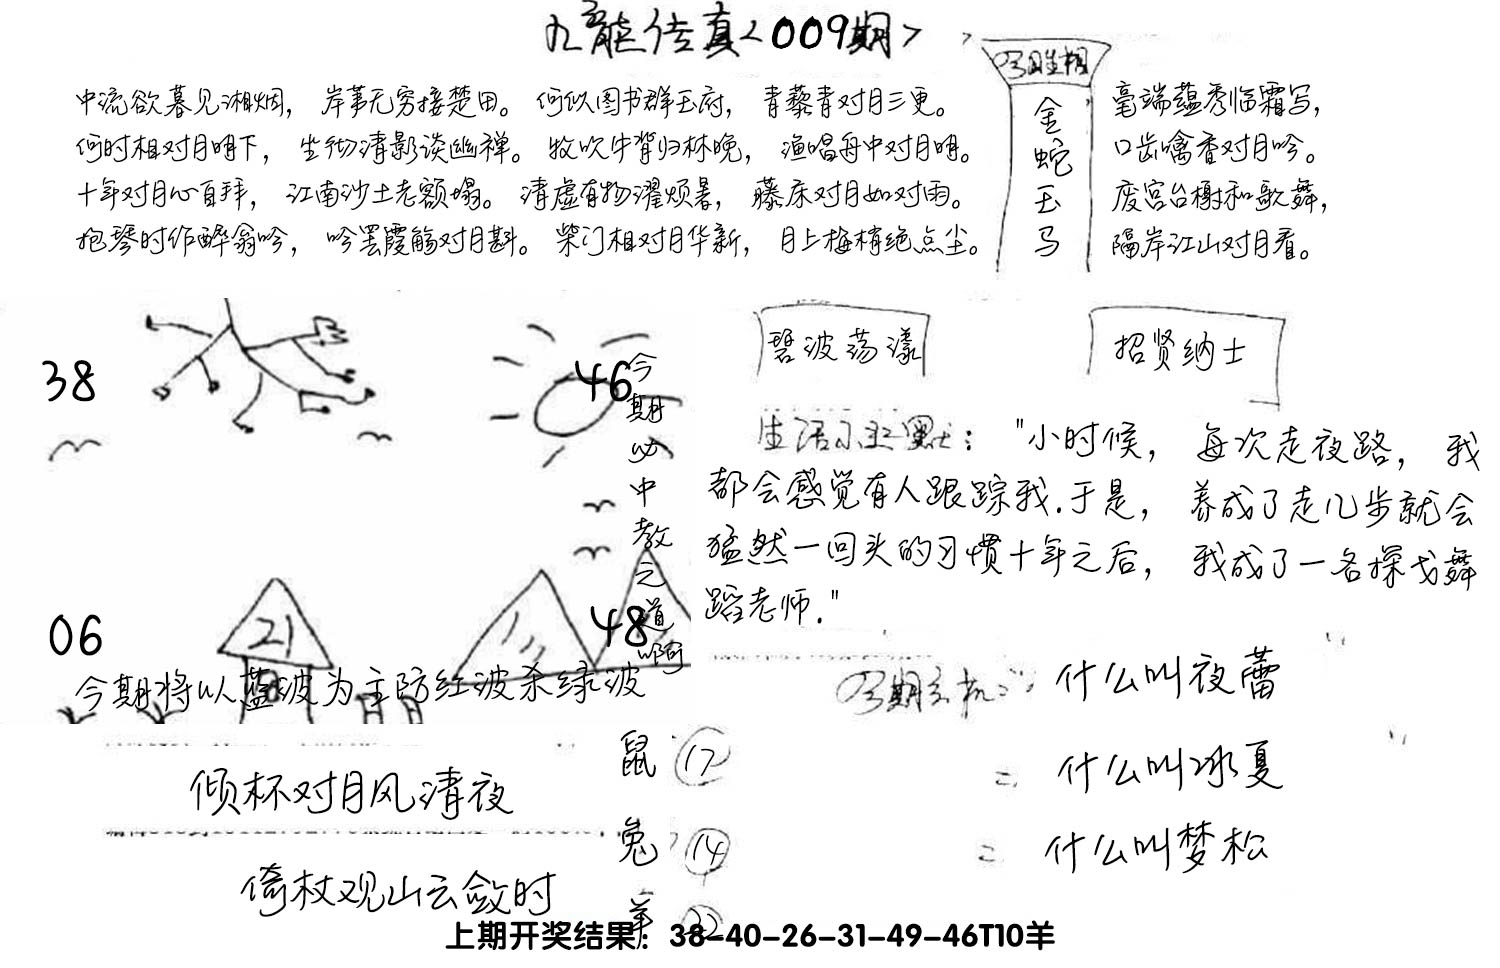 九龙传真<009期>
中流欲暮见湘烟，岸苇无穷接楚田。何似图书群玉府，青藜青对月三更。
何时相对月明下，坐彻清影谈幽禅。牧吹牛背归林晚，渔唱舟中对月明。
十年对月心自拜，江南沙土老额塌。清虚有物濯烦暑，藤床对月如对雨。
抱琴时作醉翁吟，吟罢霞觞对月斟。柴门相对月华新，月上梅梢绝点尘。
金
蛇
玉
马
毫端蕴秀临霜写，
口齿噙香对月吟。
废宫台榭和歌舞，
隔岸江山对月看。
38
46
06
21
48
今期必中教之道啊
今期将以蓝波为主防红波杀绿波
碧波荡漾
招贤纳士
生活小幽默："小时候，每次走夜路，我
都会感觉有人跟踪我.于是，养成了走几步就会
猛然一回头的习惯十年之后，我成了一名探戈舞
蹈老师."
今期玄机：什么叫夜蕾
= 什么叫冰夏
= 什么叫梦松
倾杯对月风清夜
倚杖观山云敛时
鼠 17
兔 14
羊 22
上期开奖结果：38-40-26-31-49-46T10羊